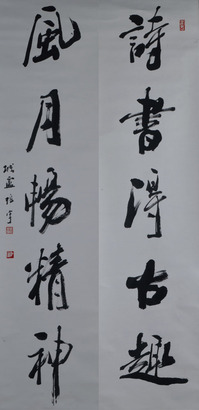 詩書得古趣
風月暢精神